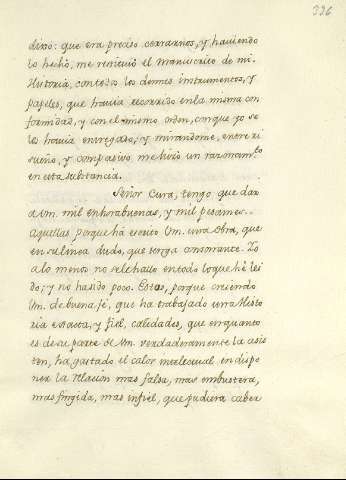 336
dixo: que era preciso cerrarnos, y haviendo
lo hecho, me restituió el manuscrito de mi
Historia, con todos los demas instrumentos, y
papeles, que havia recorrido en la misma con
formidad, y con el mismo orden, con que yo se
los havia entregado; y mirandome, entre ri
sueño, y compasivo me hizo un razonam.to
en esta substancia.
Señor Cura, tengo que dar
à Vm. mil enhorabuenas, y mil pesames.
Aquellas porque ha escrito Vm. una obra, que
en su linea dudo, que tenga consonante. Yo
a lo menos no se le hallo en todo lo que hè lei
do; y no ha sido poco. Estos, porque creiendo
Vm. de buena fè, que ha trabajado una Histo
ria exacta, y fiel, calidades, que en quanto
es de su parte de Vm. verdaderamente la asis
ten, ha gastado el calor intelectual en dispo
ner la relacion mas falsa, mas embustera,
mas fingida, mas infiel, que pudiera caber